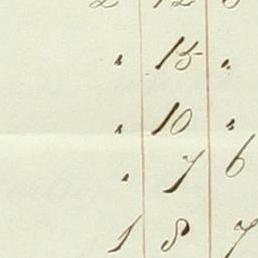 2 12 6
" 15 "
" 10 "
" 7 6
1 8 7